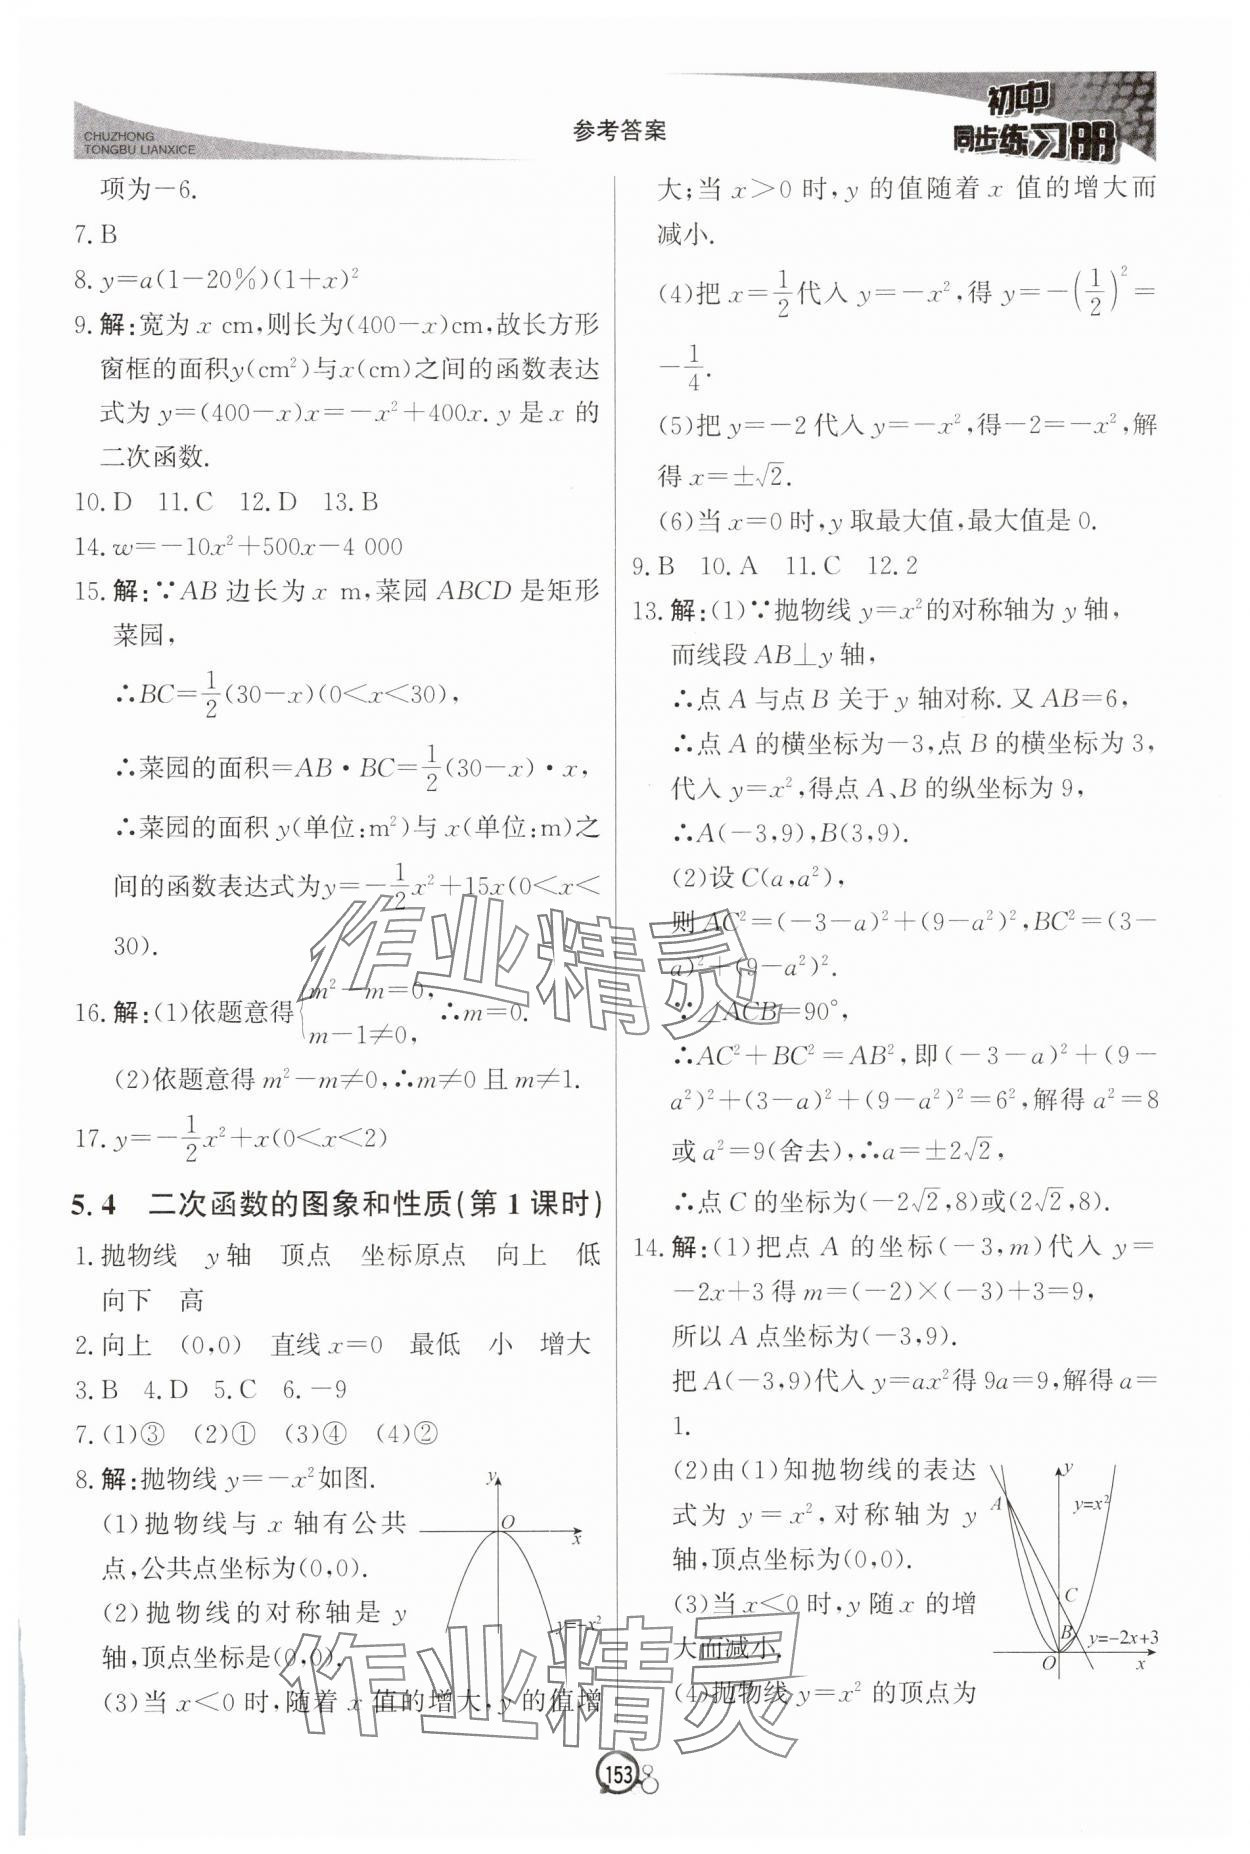 CHUZHONG
TONGBU LIANXICE
参考答案
初中
同步练习册
项为-6.
7. B
8. y=a(1-20%)(1+x)²
9. 解:宽为 x cm,则长为(400-x)cm,故长方形
窗框的面积y(cm²)与x(cm)之间的函数表达
式为 y=(400-x)x=-x²+400x. y 是 x 的
二次函数.
10. D 11. C 12. D 13. B
14. w=-10x²+500x-4 000
15. 解:∵AB 边长为 x m,菜园 ABCD 是矩形
菜园,
∴BC=1/2(30-x)(0<x<30),
∴菜园的面积=AB·BC=1/2(30-x)·x,
∴菜园的面积 y(单位:m²)与 x(单位:m)之
间的函数表达式为y=-1/2x²+15x(0<x<
30).
16. 解:(1)依题意得{m²-m=0, m-1≠0, ∴m=0.
(2)依题意得 m²-m≠0,∴m≠0 且 m≠1.
17. y=-1/2x²+x(0<x<2)
5.4 二次函数的图象和性质(第 1 课时)
1. 抛物线 y 轴 顶点 坐标原点 向上 低
向下 高
2. 向上 (0,0) 直线 x=0 最低 小 增大
3. B 4. D 5. C 6. -9
7. (1)③ (2)① (3)④ (4)②
8. 解:抛物线 y=-x²如图.
(1)抛物线与 x 轴有公共
点,公共点坐标为(0,0).
(2)抛物线的对称轴是 y
轴,顶点坐标是(0,0).
(3)当 x<0 时,随着 x 值的增大,y 的值增
y
O
x
y=-x²
大;当 x>0 时,y 的值随着 x 值的增大而
减小.
(4)把 x=1/2代入 y=-x²,得 y=-(1/2)²=
-1/4.
(5)把 y=-2代入 y=-x²,得-2=-x²,解
得 x=±√2.
(6)当 x=0 时,y 取最大值,最大值是 0.
9. B 10. A 11. C 12. 2
13. 解:(1)∵抛物线 y=x²的对称轴为 y 轴,
而线段 AB⊥y 轴,
∴点 A 与点 B 关于 y 轴对称. 又 AB=6,
∴点 A 的横坐标为-3,点 B 的横坐标为 3,
代入 y=x²,得点 A、B 的纵坐标为 9,
∴A(-3,9),B(3,9).
(2)设 C(a,a²),
则 AC²=(-3-a)²+(9-a²)²,BC²=(3-
a)²+(9-a²)².
∵∠ACB=90°,
∴AC²+BC²=AB²,即(-3-a)²+(9-
a²)²+(3-a)²+(9-a²)²=6²,解得 a²=8
或 a²=9(舍去),∴a=±2√2,
∴点 C 的坐标为(-2√2,8)或(2√2,8).
14. 解:(1)把点 A 的坐标(-3,m)代入 y=
-2x+3 得 m=(-2)×(-3)+3=9,
所以 A 点坐标为(-3,9).
把 A(-3,9)代入 y=ax²得 9a=9,解得 a=
1.
(2)由(1)知抛物线的表达
式为 y=x²,对称轴为 y
轴,顶点坐标为(0,0).
(3)当 x<0 时,y 随 x 的增
大而减小.
(4)抛物线 y=x² 的顶点为
y
A
y=x²
C
B
y=-2x+3
O
x
作业精灵
作业精灵
153